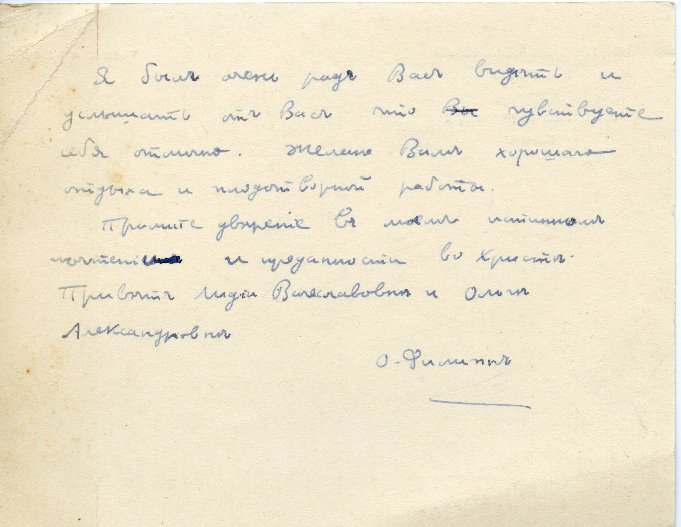 Я былъ очень радъ Васъ видѣть и
услышать отъ Васъ что Вы чувствуете
себя отлично. Желаю Вамъ хорошаго
отдыха и плодотворной работы.
Примите увѣреніе въ моемъ истинномъ
почтеніи и преданности во Христѣ.
Привѣтъ Лидіи Вячеславовнѣ и Ольгѣ
Александровнѣ
О. Филиппъ